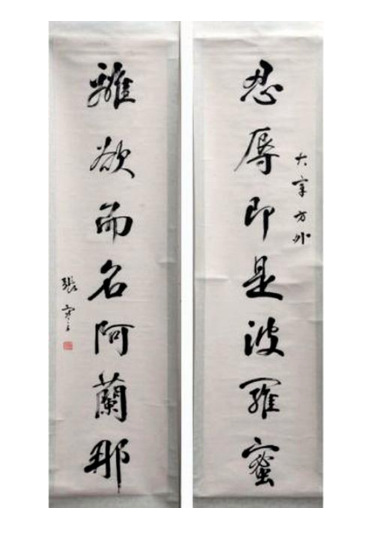 大 方外
忍辱即是波羅蜜
離欲而名阿蘭那
張